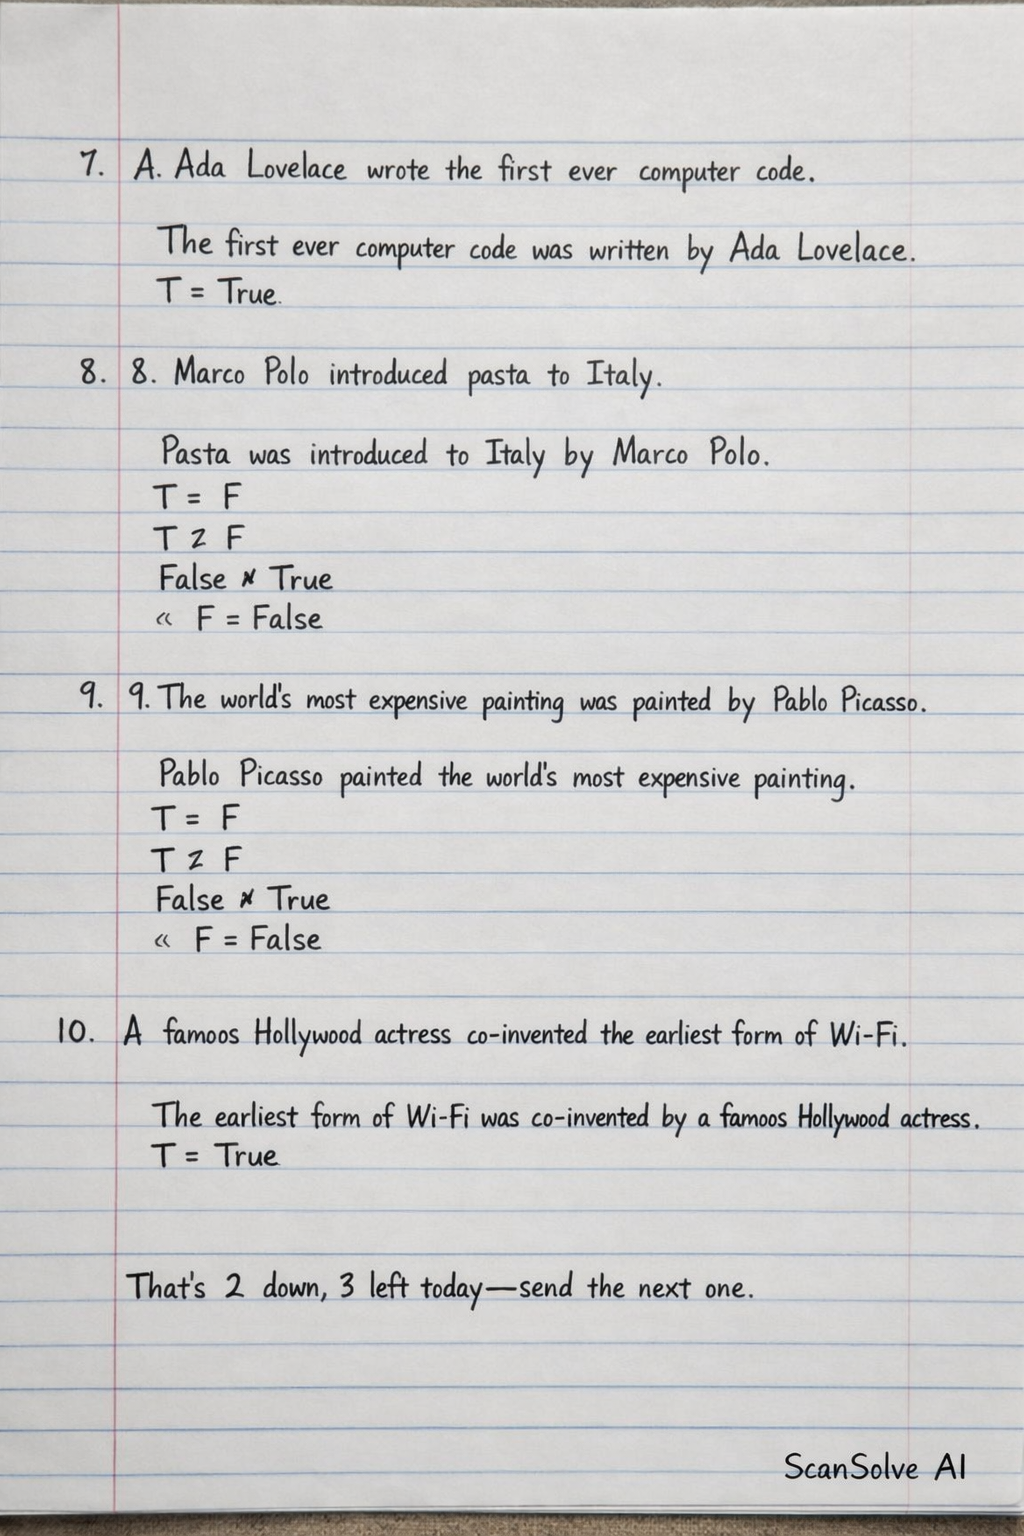 7. A. Ada Lovelace wrote the first ever computer code.
The first ever computer code was written by Ada Lovelace.
T = True.
8. 8. Marco Polo introduced pasta to Italy.
Pasta was introduced to Italy by Marco Polo.
T = F
T z F
False × True
« F = False
9. 9. The world's most expensive painting was painted by Pablo Picasso.
Pablo Picasso painted the world's most expensive painting.
T = F
T z F
False × True
« F = False
10. A famoos Hollywood actress co-invented the earliest form of Wi-Fi.
The earliest form of Wi-Fi was co-invented by a famoos Hollywood actress.
T = True
That's 2 down, 3 left today—send the next one.
ScanSolve AI